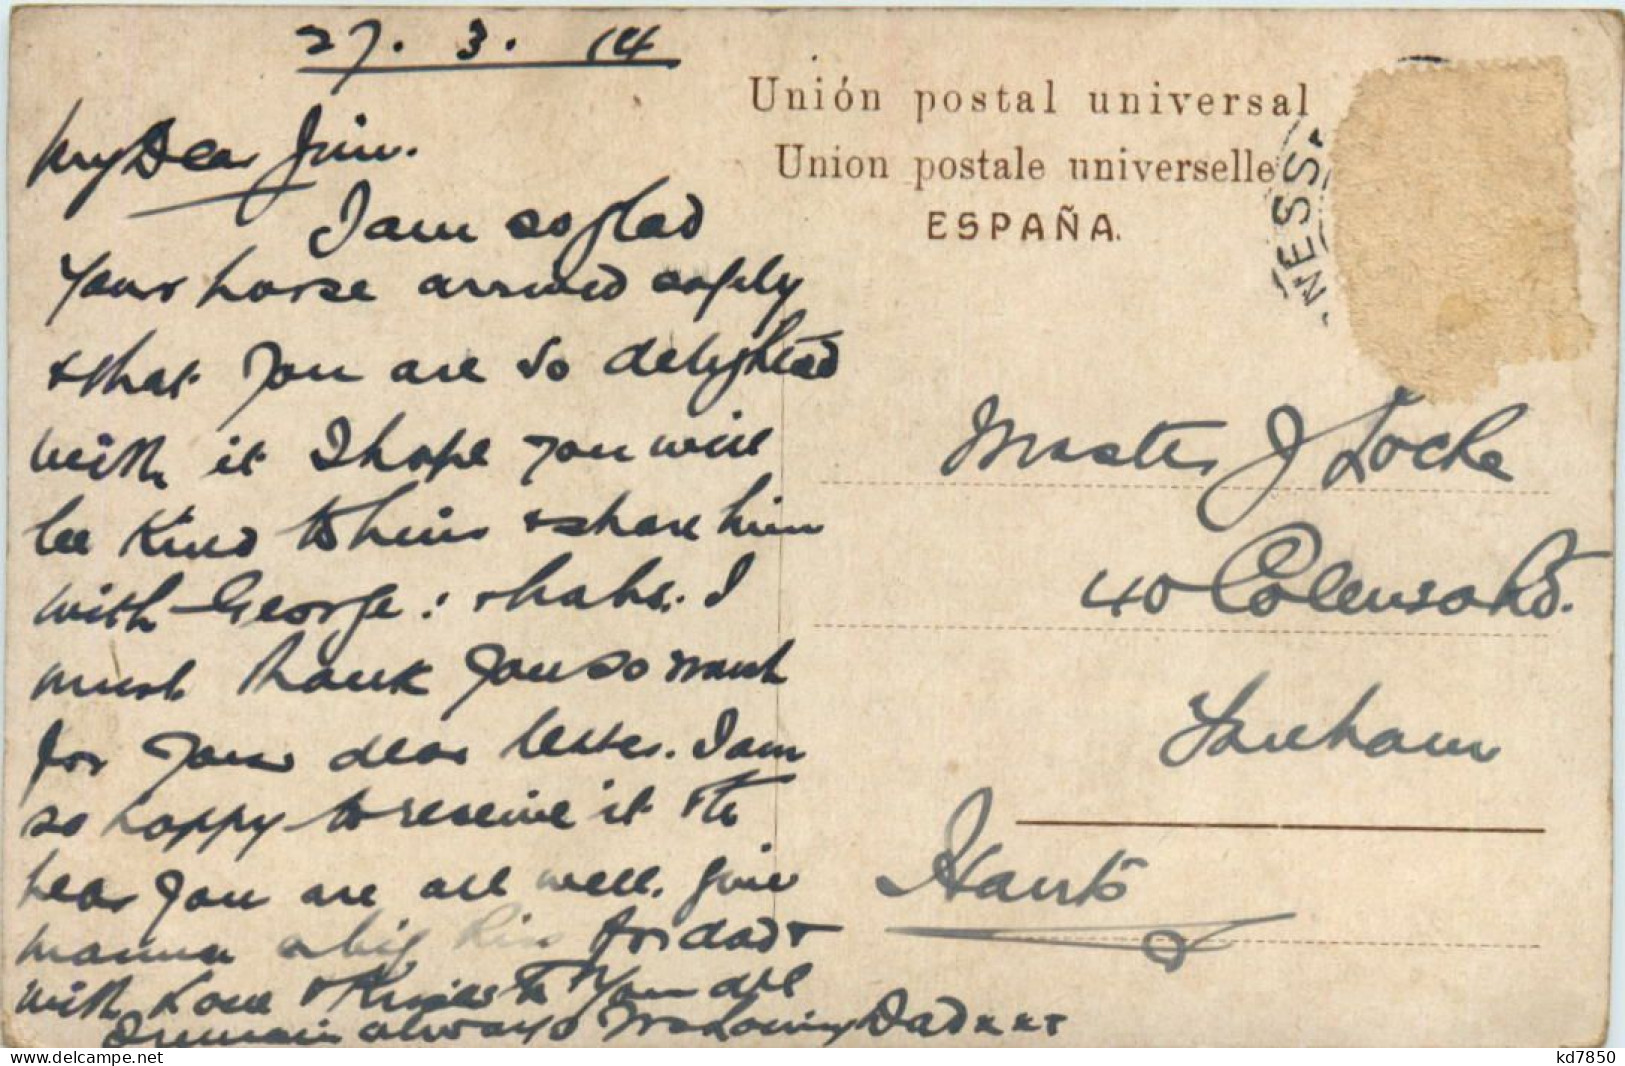 27. 3. 14
My Dear Jim.
I am so glad
your horse arrived safely
& that you are so delighted
with it I hope you will
be kind to him & share him
with George: & Babs. I
must thank you so much
for your dear letter. I am
so happy to receive it & to
hear you are all well. Give
mama a big kiss for dad &
with Love & Kisses to you all
I remain always Loving Dad xxx
Unión postal universal
Union postale universelle
ESPAÑA.
NESS
Master J Locke
40 Colenso Rd.
Fareham
Hants
delcampe.net
kd7850